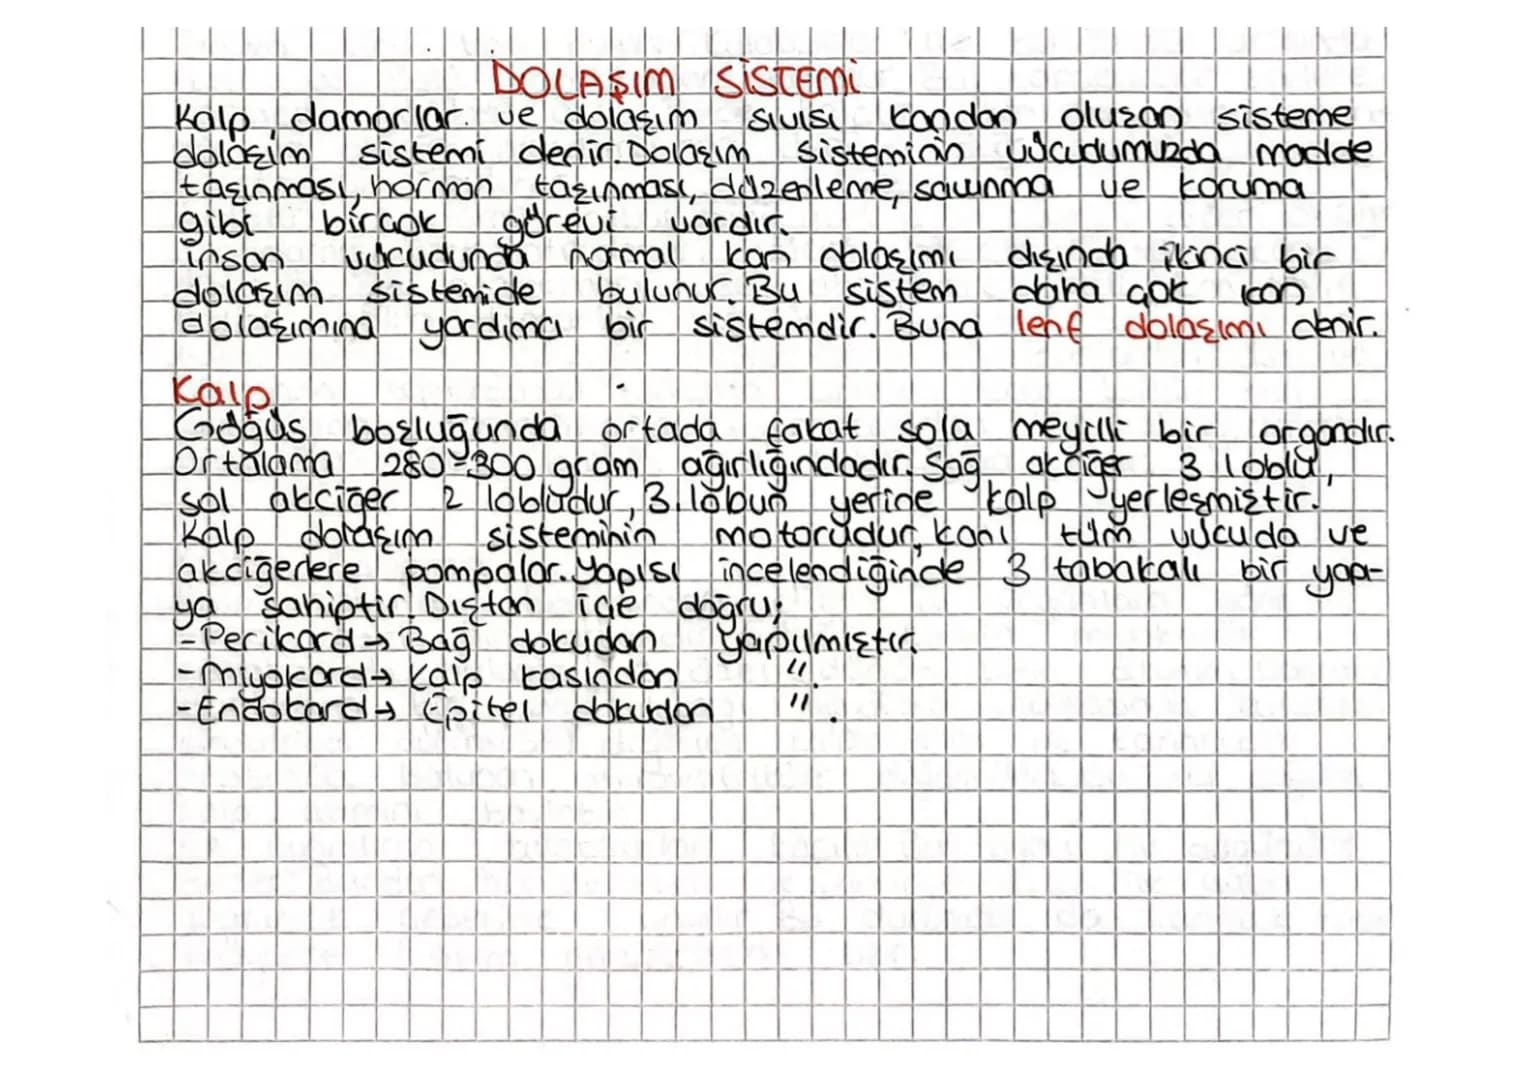 DOLAŞIM SİSTEMİ
Kalp, damarlar ve dolaşım sıvısı kandan oluşan sisteme
dolaşım sistemi denir. Dolaşım sisteminin vücudumuzda madde
taşınması, hormon taşınması, düzenleme, savunma ve koruma
gibi birçok görevi vardır.
İnsan vücudunda normal kan dolaşımı dışında ikinci bir
dolaşım sistemide bulunur. Bu sistem daha çok kan
dolaşımına yardımcı bir sistemdir. Buna lenf dolaşımı denir.
Kalp
Göğüs boşluğunda ortada fakat sola meyilli bir organdır.
Ortalama 280-300 gram ağırlığındadır. Sağ akciğer 3 loblu,
sol akciğer 2 lobludur, 3. lobun yerine kalp yerleşmiştir.
Kalp dolaşım sisteminin motorudur, kanı tüm vücuda ve
akciğerlere pompalar. Yapısı incelendiğinde 3 tabakalı bir yapı-
ya sahiptir. Dıştan içe doğru;
-Perikard→ Bağ dokudan yapılmıştır.
-Miyokard→ Kalp kasından ".
-Endokard→ Epitel dokudan ".